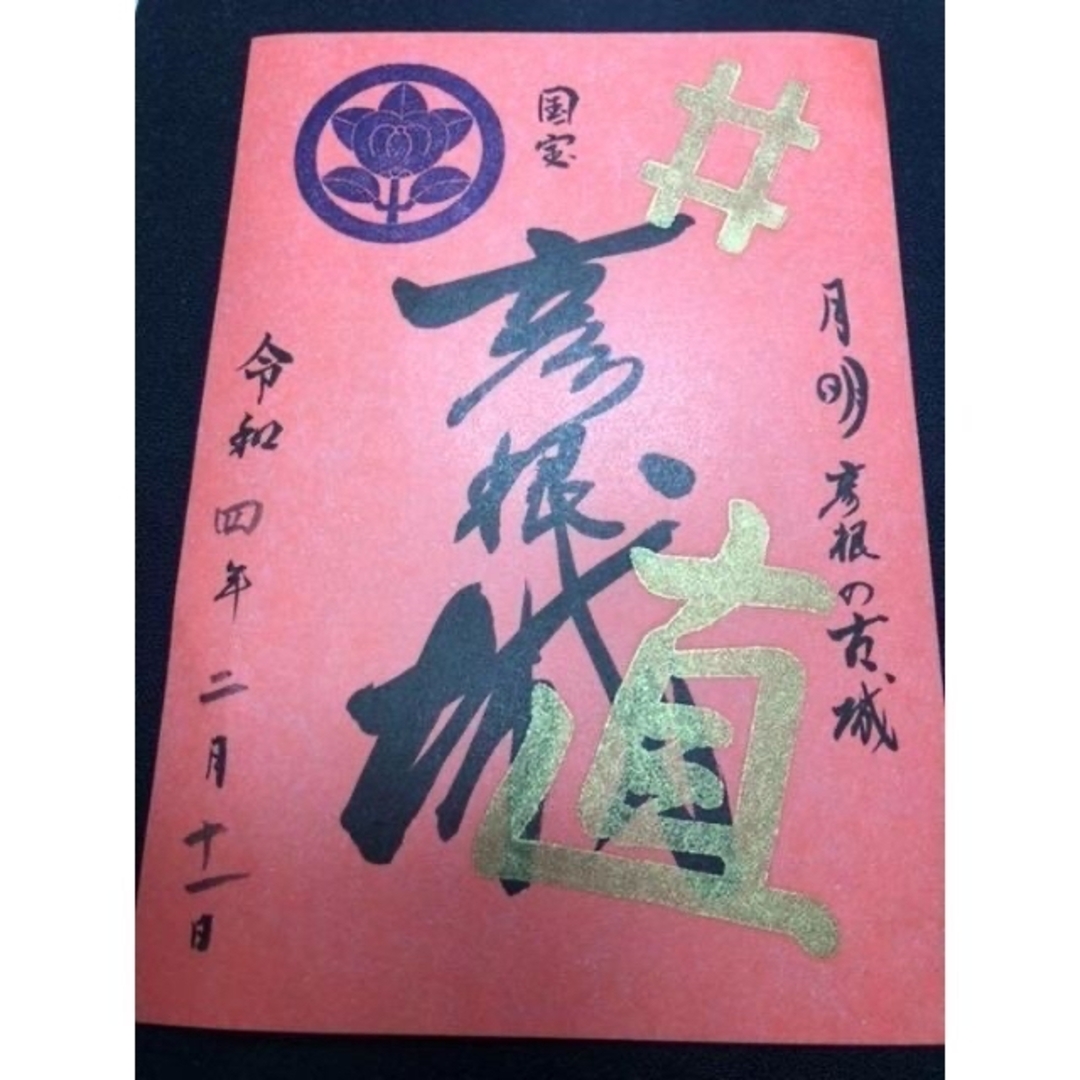 井
直
月明 彦根の古城
国宝
彦根城
令和四年二月十一日